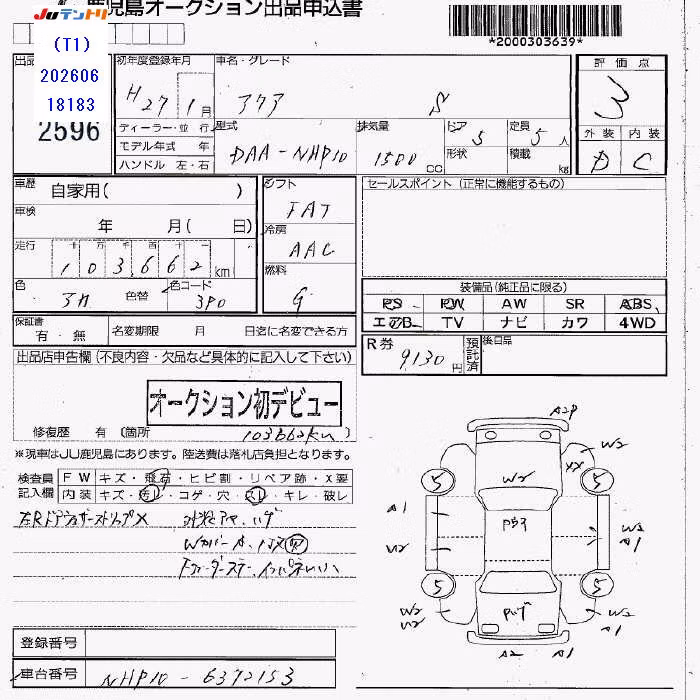 JUテントリ 鹿児島オークション出品申込書
*2000303639*
(T1)
202606
18183
2596
初年度登録年月
H27 1月
車名・グレード
アクア S
評価点
3
外装 内装
D C
ディーラー・並行
モデル年式 年
ハンドル 左・右
型式
DAA-NHP10
排気量
1500 CC
ドア 5
形状
定員 5人
積載 kg
車歴
自家用( )
車検
年 月( 日)
走行
十 万 千 百 十
103,662 km
色
色替
色コード
3P0
シフト
FAT
冷房
AAC
燃料
G
セールスポイント (正常に機能するもの)
装備品(純正品に限る)
PS PW AW SR ABS
エアB TV ナビ カワ 4WD
保証書
有・無
名変期限 月 日迄に名変できる方
R券
9130円
預託済
後日品
出品店申告欄(不良内容・欠品など具体的に記入して下さい)
オークション初デビュー
修復歴 有 (箇所 )
103662km
※現車はJU鹿児島にあります。陸送費は落札店負担となります。
検査員記入欄
FW キズ・飛石・ヒビ割・リペア跡・X要
内装 キズ・汚レ・コゲ・穴・スレ・キレ・破レ
A2P
W2
XX
W2
5
5
A1
W2
W2
A1
5
5
W2
A1
W2
A1
A2 A1
登録番号
車台番号 NHP10-6372153